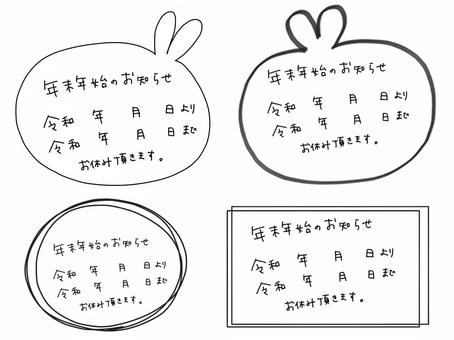 年末年始のお知らせ
令和 年 月 日より
令和 年 月 日まで
お休み頂きます。
年末年始のお知らせ
令和 年 月 日より
令和 年 月 日まで
お休み頂きます。
年末年始のお知らせ
令和 年 月 日より
令和 年 月 日まで
お休み頂きます。
年末年始のお知らせ
令和 年 月 日より
令和 年 月 日まで
お休み頂きます。